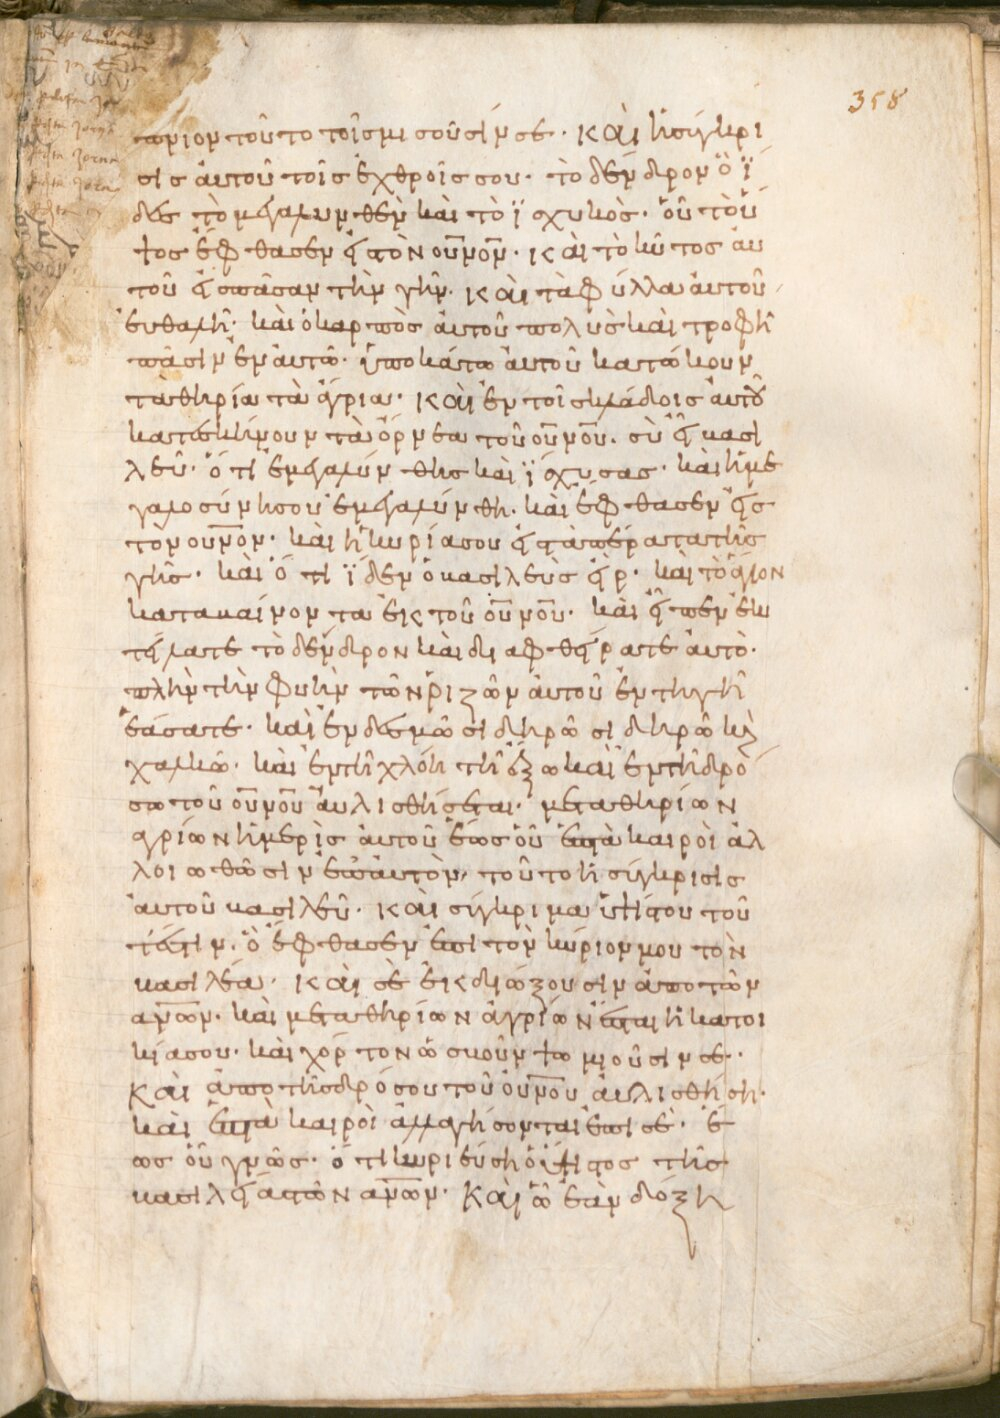 358
πνιον τοῦτο τοῖς μισοῦσίν σε· καὶ ἡ σύγκρι
σις αὐτοῦ τοῖς ἐχθροῖς σου· τὸ δένδρον ὃ ἴ
δες τὸ μεγαλυνθὲν καὶ τὸ ἰσχυκὸς· οὗ τὸ ὕ
ψος ἔφθασεν εἰς τὸν οὐνὸν· καὶ τὸ κύτος αὐ
τοῦ εἰς πᾶσαν τὴν γῆν· καὶ τὰ φύλλα αὐτοῦ
εὐθαλῆ· καὶ ὁ καρπὸς αὐτοῦ πολὺς καὶ τροφὴ
πᾶσιν ἐν αὐτῶ· ὑποκάτω αὐτοῦ κατώκουν
τὰ θηρία τὰ ἄγρια· καὶ ἐν τοῖς κλάδοις αὐτοῦ
κατεσκήνουν τὰ ὄρνεα τοῦ οὐνοῦ· σὺ εἶ βασι
λεῦ· ὅτι ἐμεγαλύνθης καὶ ἴσχυσας· καὶ ἡ με
γαλοσύνη σου ἐμεγαλύνθη· καὶ ἔφθασεν εἰς
τὸν οὐνὸν· καὶ ἡ κυρία σου εἰς τὰ πέρατα τῆς
γῆς· καὶ ὅτι ἴδεν ὁ βασιλεὺς εἲρ· καὶ τὸ ἅγιον
καταβαίνοντα ἐκ τοῦ οὐνοῦ· καὶ εἶπεν ἐκ
τείλατε τὸ δένδρον καὶ διαφθείρατε αὐτὸ·
πλὴν τὴν φυὴν τῶν ῥιζῶν αὐτοῦ ἐν τῇ γῇ
ἐάσατε· καὶ ἐν δεσμῶ σιδηρῶ σιδηρῶ κὶ
χαλκῶ· καὶ ἐν τῇ χλόῃ τῇ ἔξω καὶ ἐν τῇ δρό
σω τοῦ οὐνοῦ αὐλισθήσεται· μετα θηρίων
αγρίων ἡ μερὶς αὐτοῦ ἕως οὗ ἑπτὰ καιροὶ ἀλ
λοιωθῶσιν ἐπ' αὐτὸν, τοῦτο ἡ σύγκρισις
αὐτοῦ βασιλεῦ· καὶ σύγκριμα ὑψίστου τοῦ
τό ἐστιν· ὃ ἔφθασεν ἐπι τὸν κύριον μου τὸν
βασιλέα· καὶ σὲ ἐκδιώξουσιν ἀπο τῶν
ανων· καὶ μετα θηρίων ἀγρίων ἔσται ἡ κατοι
κία σου· καὶ χόρτον ὡς βοῦν ψωμιοῦσιν σε·
καὶ ἀπο τῆς δρόσου τοῦ οὐνοῦ αὐλισθήσῃ·
καὶ ἑπτὰ καιροὶ ἀλλαγήσονται ἐπι σὲ· ἕ
ως οὗ γνῶς· ὅτι κυριεύσῃ ὁ ὕψιστος τῆς
βασιλείας τῶν ανων· καὶ ὧ ἐὰν δόξη